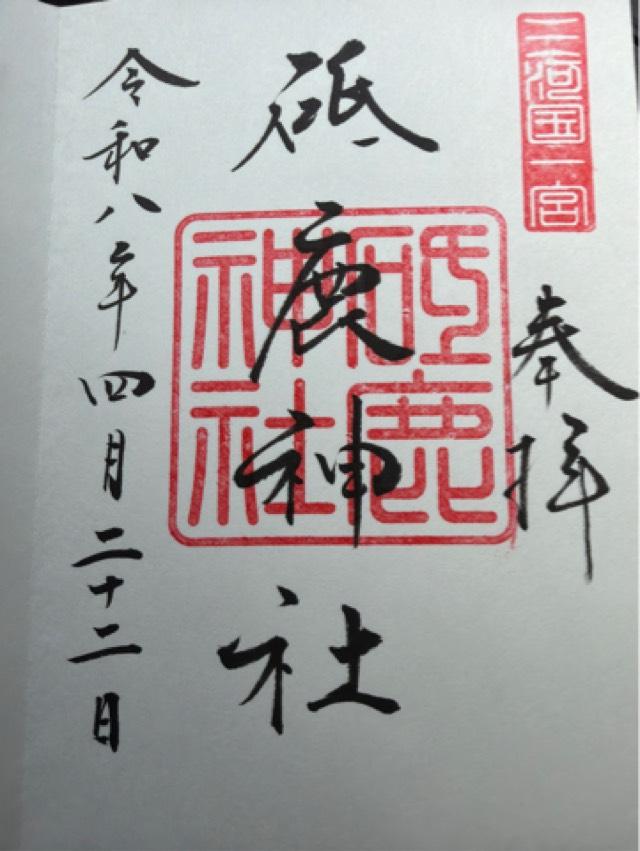 三河国一宮
奉拝
砥鹿神社
砥鹿神社
令和八年四月二十二日